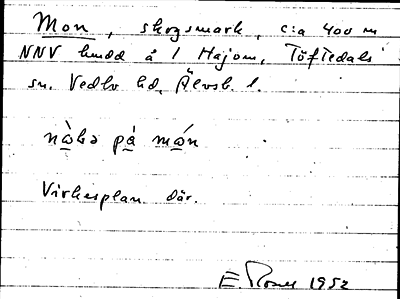 Mon, skogsmark, c:a 400 m
NNV hmdd å 1 Hajom, Töftedals
sn. Vedbo hd, Älvsb. l.
nàbə på mån
Virkesplan där.
E. 1952